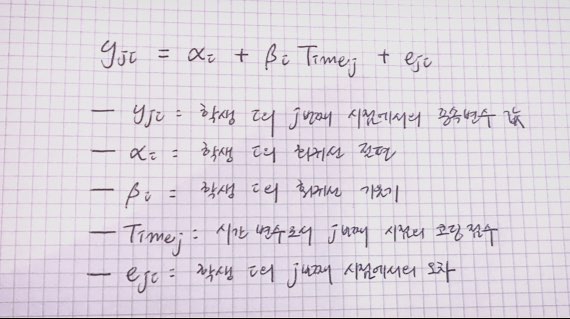 yji = αi + βi Timej + eji
— yji = 학생 i의 j번째 시점에서의 종속변수 값
— αi = 학생 i의 회귀선 절편
— βi = 학생 i의 회귀선 기울기
— Timej : 시간 변수로서 j번째 시점의 코딩 점수
— eji = 학생 i의 j번째 시점에서의 오차